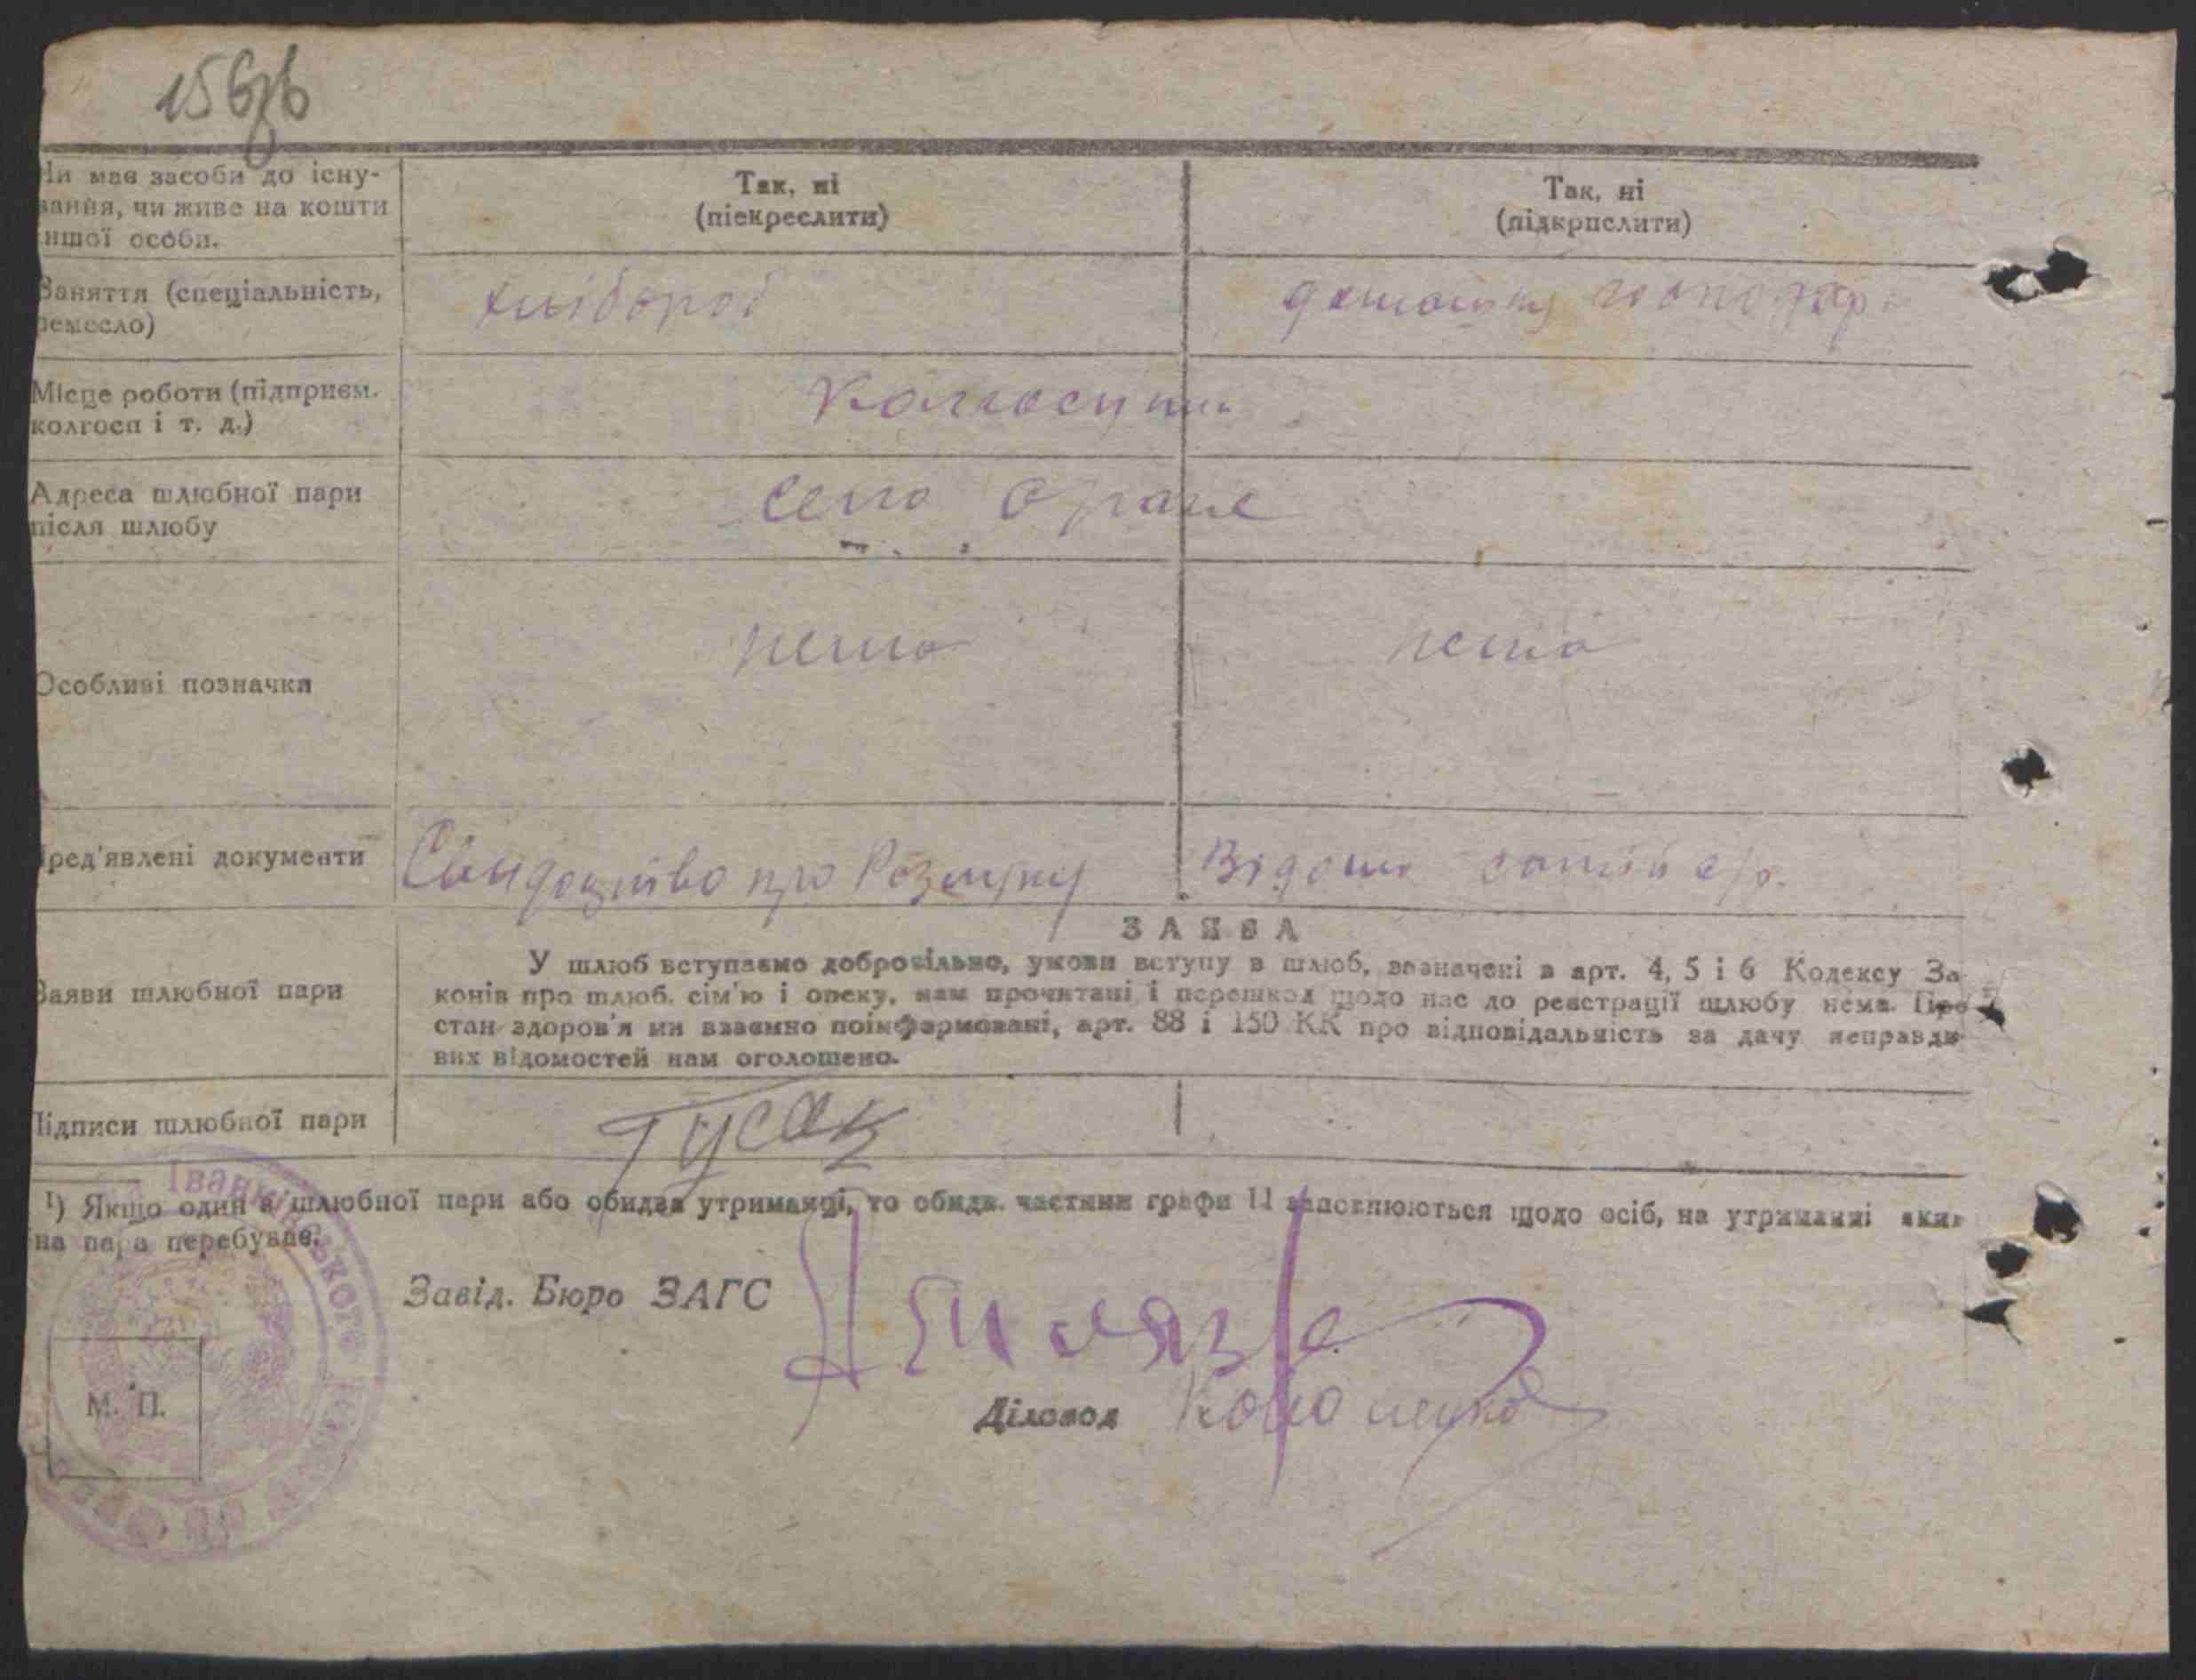 156зв
Чи має засоби до існу-
вання, чи живе на кошти
іншої особи.
Так, ні
(піекреслити)
Так, ні
(підкрпслити)
Заняття (спеціальність,
ремесло)
хлібороб
домашнь господар
Місце роботи (підприєм.
колгосп і т. д.)
Колгоспник
Адреса шлюбної пари
після шлюбу
село Оране
Особливі позначки
нема
нема
Пред'явлені документи
Свидоцтво про Розлуку
Відомо самій с/р.
ЗАЯВА
Заяви шлюбної пари
У шлюб вступаємо добровільно, умови вступу в шлюб, зазначені в арт. 4, 5 і 6 Кодексу За
конів про шлюб. сім'ю і опеку, нам прочитані і перешкод щодо нас до реєстрації шлюбу нема. Про
стан здоров'я ми взаємно поінформовані, арт. 88 і 150 КК про відповідальність за дачу неправди
вих відомостей нам оголошено.
Підписи шлюбної пари
Гусак
1) Якщо один з шлюбної пари або обидва утриманці, то обидв. частини графи 11 заповнюються щодо осіб, на утриманні яких
на пара перебуває.
Іванківського
Завід. Бюро ЗАГС
М. П.
Діловод